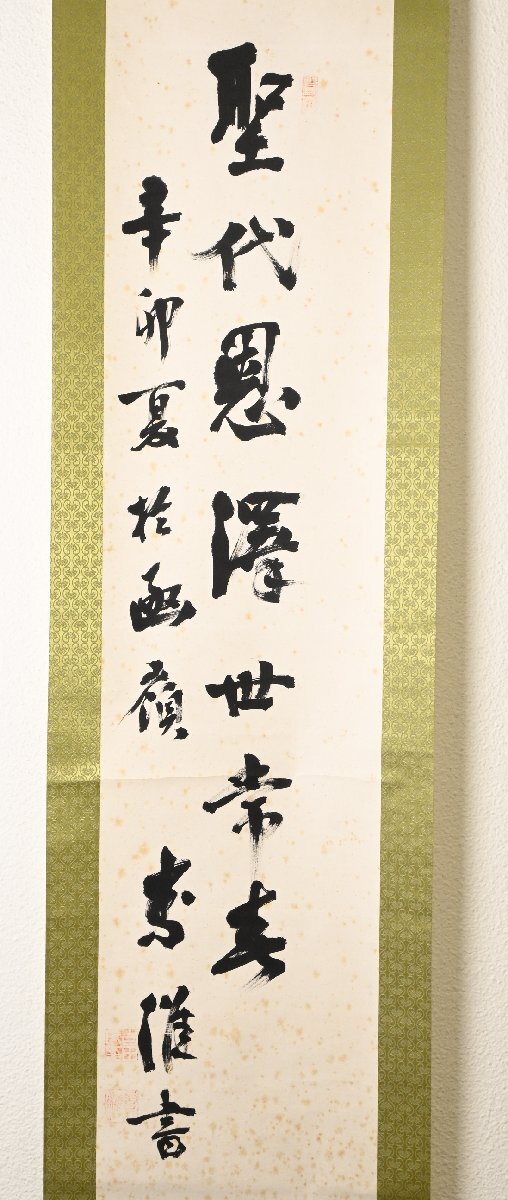 聖代恩澤世常春
辛卯夏於函嶺 書